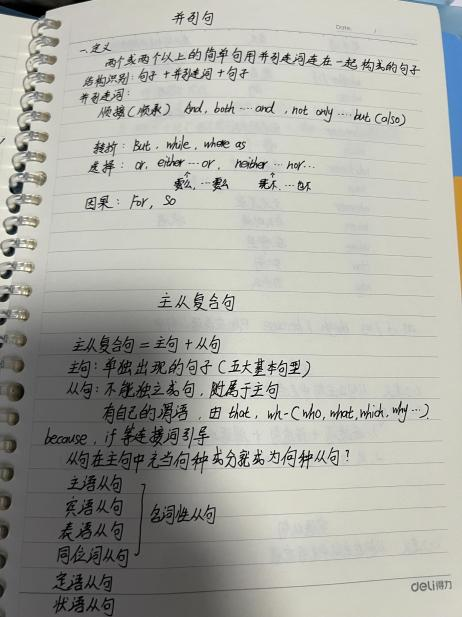 并列句
Date. /
一、定义
两个或两个以上的简单句用并列连词连在一起构成的句子
结构识别：句子 + 并列连词 + 句子
并列连词：
顺接（顺承） And, both … and , not only … but (also)
转折：But, while, where as
选择：or, either … or, neither … nor …
要么，… 要么 既不，… 也不
因果：For, So
主从复合句
主从复合句 = 主句 + 从句
主句：单独出现的句子（五大基本句型）
从句：不能独立成句，附属于主句
有自己的谓语，由 that, wh-(who, what, which, why …),
because, if 等连接词引导
从句在主句中充当何种成分就成为何种从句？
主语从句
宾语从句
表语从句
同位词从句
名词性从句
定语从句
状语从句
deli得力